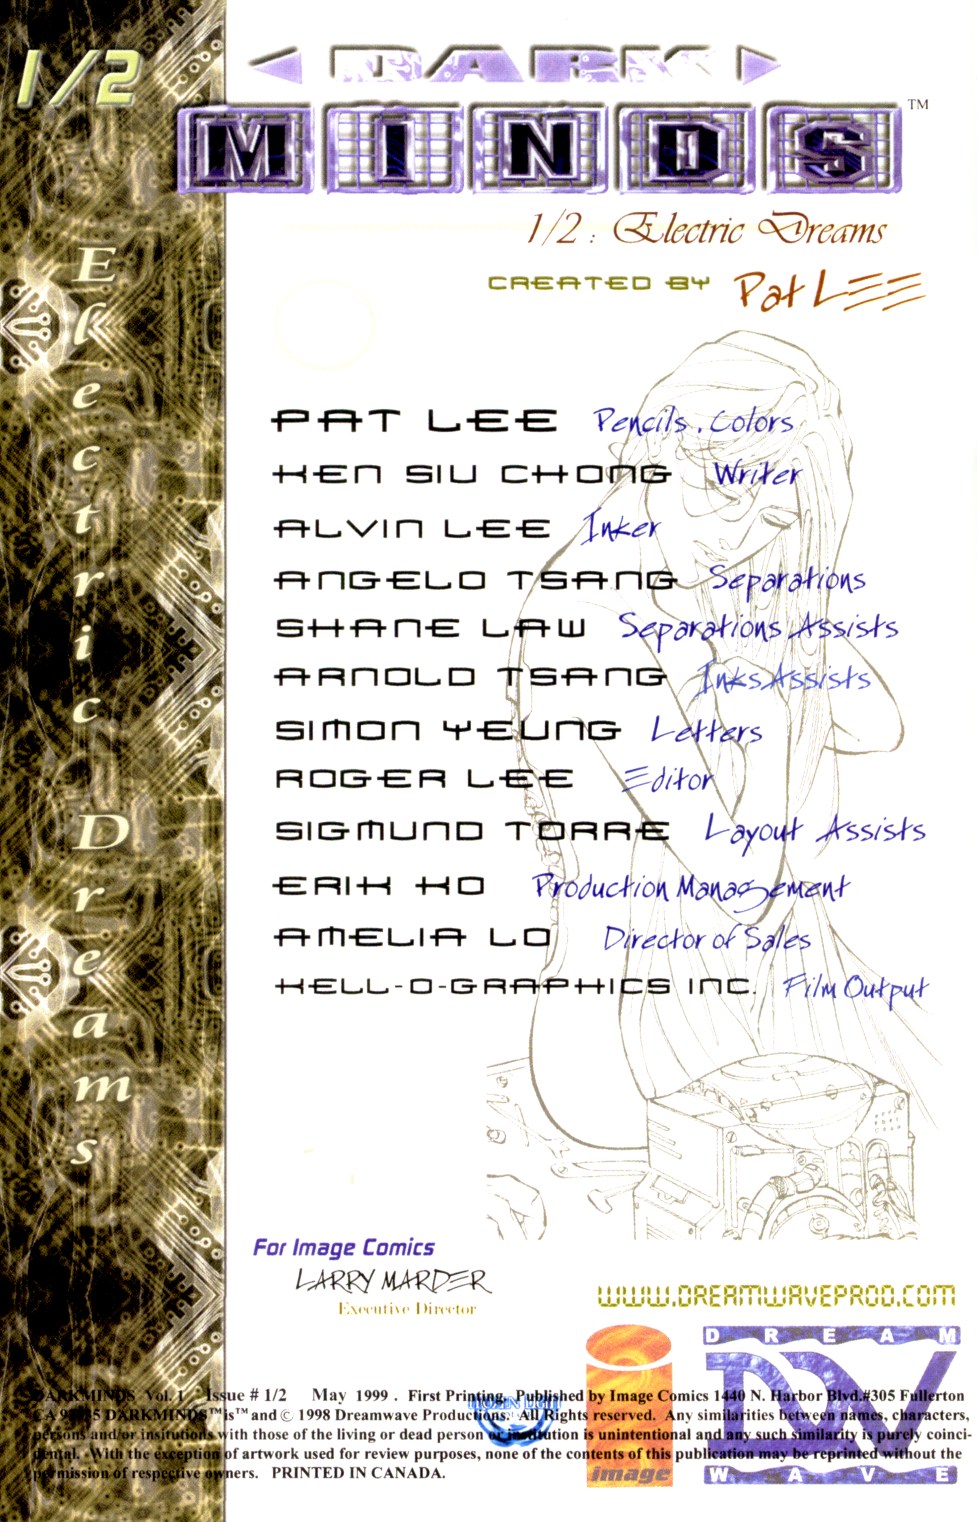 1/2
DARK
MINDS™
1/2 : Electric Dreams
CREATED BY Pat LEE
Electric Dreams
PAT LEE Pencils, Colors
KEN SIU CHONG Writer
ALVIN LEE Inker
ANGELO TSANG Separations
SHANE LAW Separations Assists
ARNOLD TSANG Inks Assists
SIMON YEUNG Letters
ROGER LEE Editor
SIGMUND TORRE Layout Assists
ERIK KO Production Management
AMELIA LO Director of Sales
KELL-O-GRAPHICS INC. Film Output
For Image Comics
LARRY MARDER
Executive Director
WWW.DREAMWAVEPROD.COM
DREAM
DW
WAVE
i
image
DARKMINDS Vol. 1 Issue # 1/2 May 1999 . First Printing. Published by Image Comics 1440 N. Harbor Blvd.#305 Fullerton
CA DARKMINDS™is™and © 1998 Dreamwave Productions. All Rights reserved. Any similarities between names, characters,
persons and/or insitutions with those of the living or dead person or institution is unintentional and any such similarity is purely coinci-
dental. With the exception of artwork used for review purposes, none of the contents of this publication may be reprinted without the
permission of respective owners. PRINTED IN CANADA.